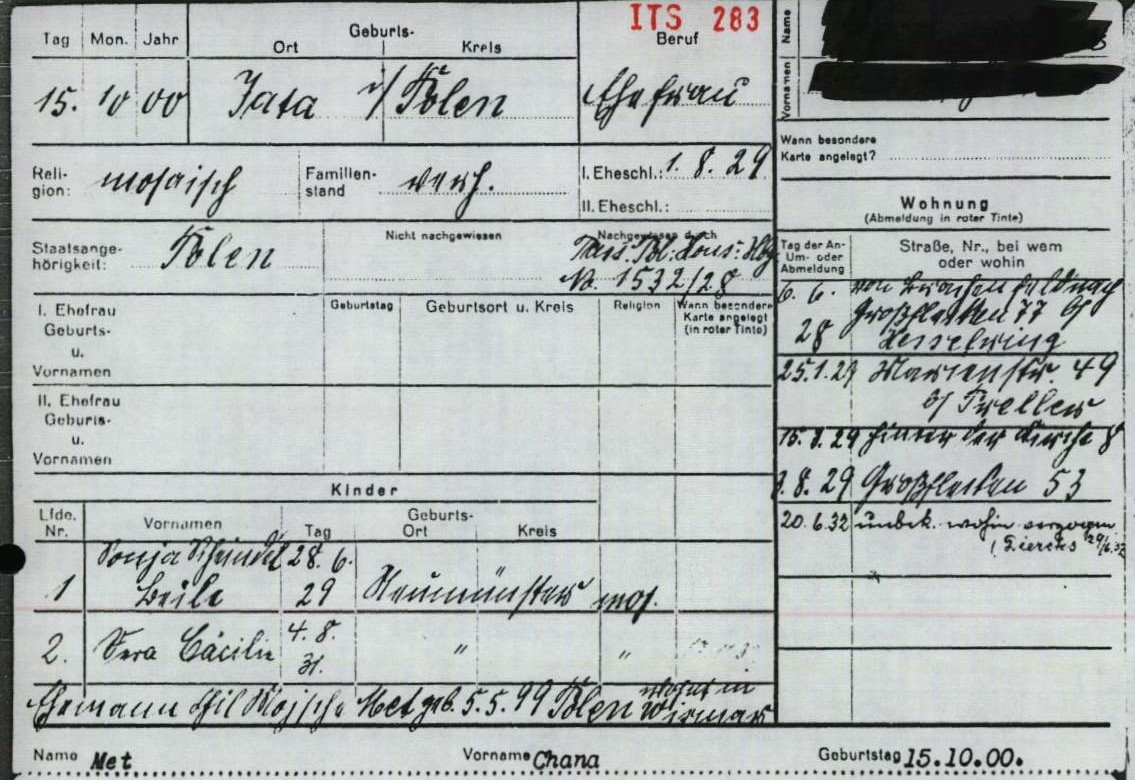 ITS 283
Tag Mon. Jahr Geburts- Ort Kreis Beruf Name
15. 10 00 Jata i/ Polen Ehefrau Vornamen
Wann besondere
Karte angelegt?
Religion: mosaisch Familienstand verh. I. Eheschl.: 1. 8. 29
II. Eheschl.:
Wohnung
(Abmeldung in roter Tinte)
Staatsangehörigkeit: Polen Nicht nachgewiesen Nachgewiesen durch
Pass. Pol. Kons. Hbg
No. 1532/28
Tag der An- Um- oder Abmeldung Straße, Nr., bei wem oder wohin
6. 6. 28 von
Großflecken 77 b/
Kesselring
25.1.29 Marienstr. 49
b/ Preller
15. 29 hinter der Kirche 8
8. 29 Großflecken 53
20.6.32 unbek. wohin verzogen
Geburtstag Geburtsort u. Kreis Religion Wann besondere Karte angelegt (in roter Tinte)
I. Ehefrau
Geburts-
u.
Vornamen
II. Ehefrau
Geburts-
u.
Vornamen
Kinder
Lfde. Nr. Vornamen Tag Geburts- Ort Kreis
1 Sonja Scheindel Beile 28. 6. 29 Neumünster mos.
2. Cäcilie 4. 8. 31. " "
Ehemann Met geb. 5. 5. 99 Polen wohnt in Wismar
Name Met Vorname Chana Geburtstag 15.10.00.